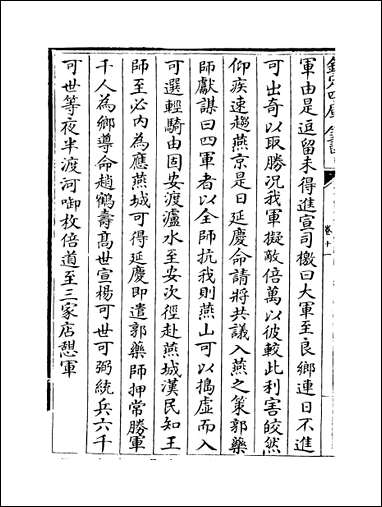 欽定四庫全書
卷十一
軍由是逗留未得進宣司檄曰大軍至良鄉連日不進
可出奇以取勝況我軍擬敵倍萬以彼較此利害皎然
仰疾速趨燕京是日延慶命請將共議入燕之策郭藥
師獻謀曰四軍者以全師抗我則燕山可以搗虛而入
可選輕騎由固安渡瀘水至安次徑赴燕城漢民知王
師至必內為應燕城可得延慶即遣郭藥師押常勝軍
千人為鄉導命趙鶴壽高世宣楊可世可弼統兵六千
可世等夜半渡河啣枚倍道至三家店憇軍